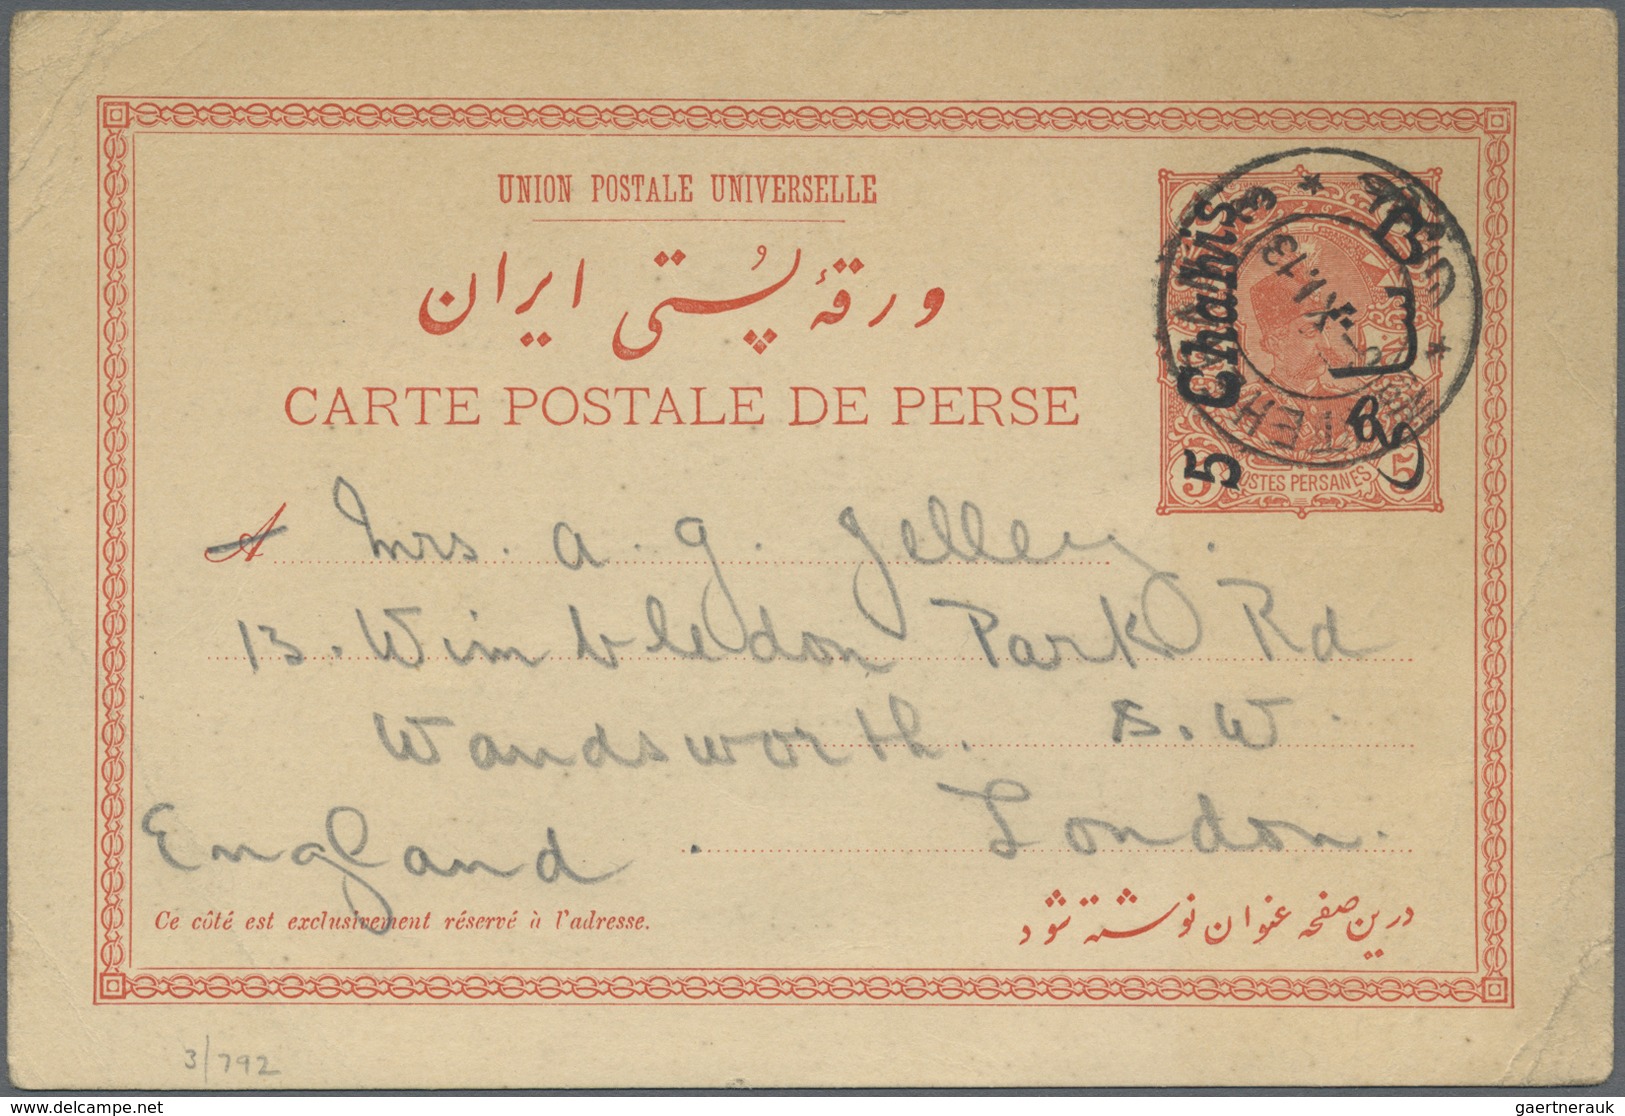 UNION POSTALE UNIVERSELLE
ورقهٔ پُستی ایران
CARTE POSTALE DE PERSE
5 Chahis
POSTES PERSANES
5 5
TEHERAN
XI.13
A Mrs. A. G. Jelley.
13. Wimbledon Park Rd
Wandsworth. S.W.
London.
England.
Ce côté est exclusivement réservé à l'adresse.
درین صفحه عنوان نوشته شود
3/792
gaertnerauk